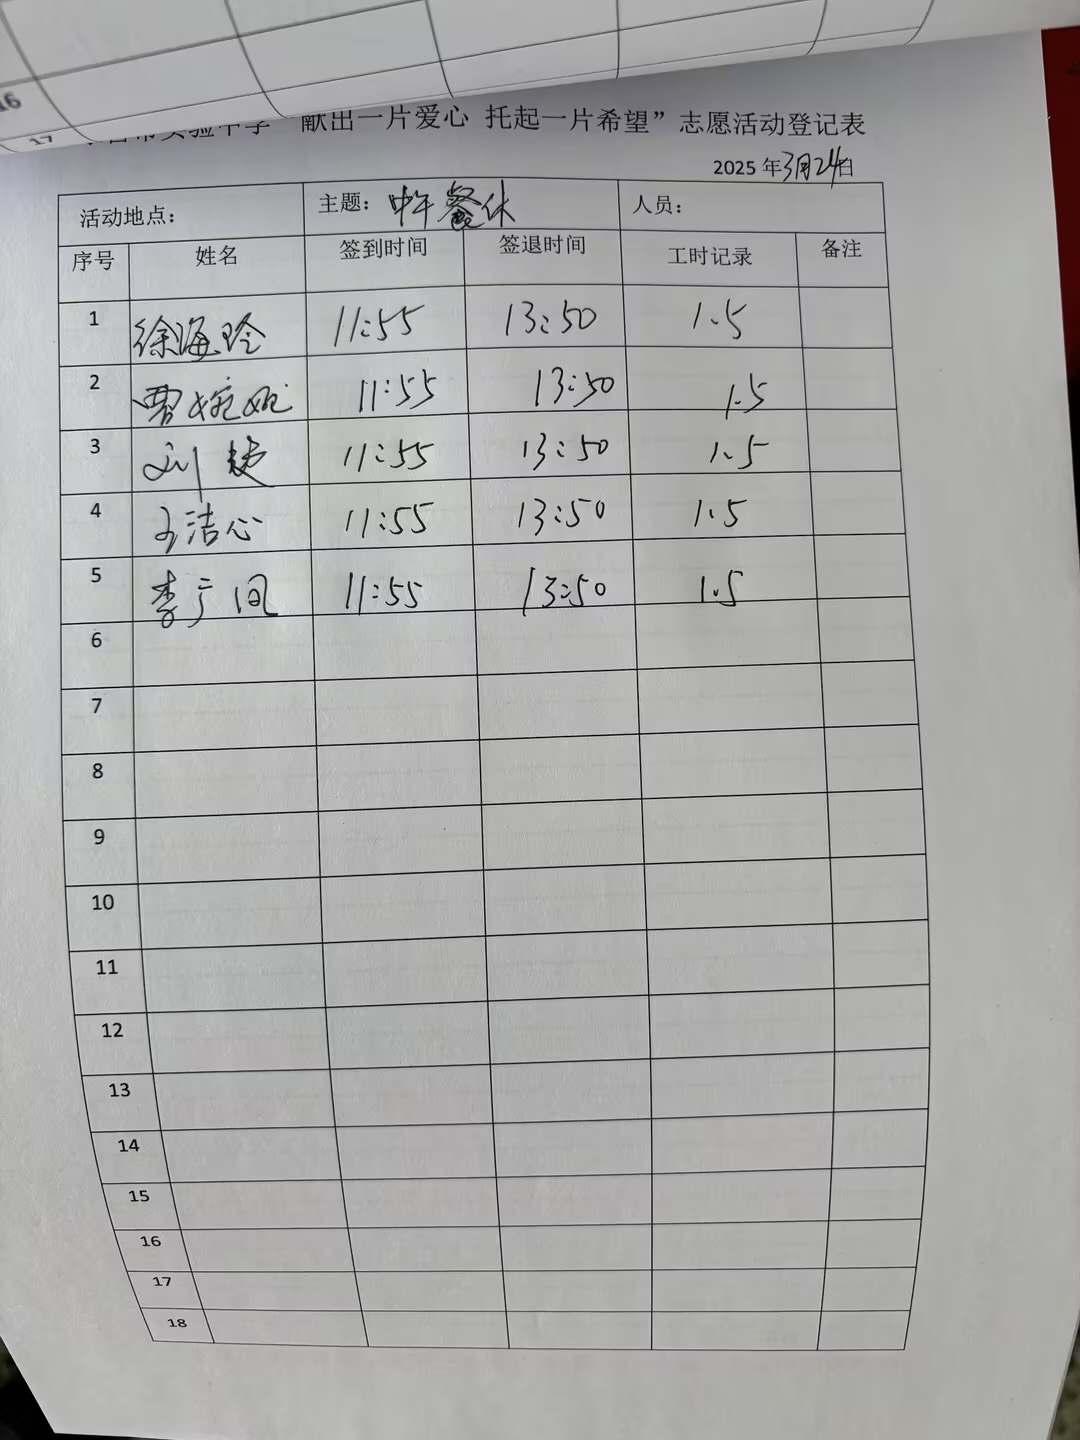 16
17
验中学“献出一片爱心 托起一片希望”志愿活动登记表
2025 年3月24日
活动地点： 主题：中午餐休 人员：
序号 姓名 签到时间 签退时间 工时记录 备注
1 徐海玲 11:55 13:50 1.5
2 曹婉妮 11:55 13:50 1.5
3 刘 11:55 13:50 1.5
4 王洁心 11:55 13:50 1.5
5 李广凤 11:55 13:50 1.5
6
7
8
9
10
11
12
13
14
15
16
17
18